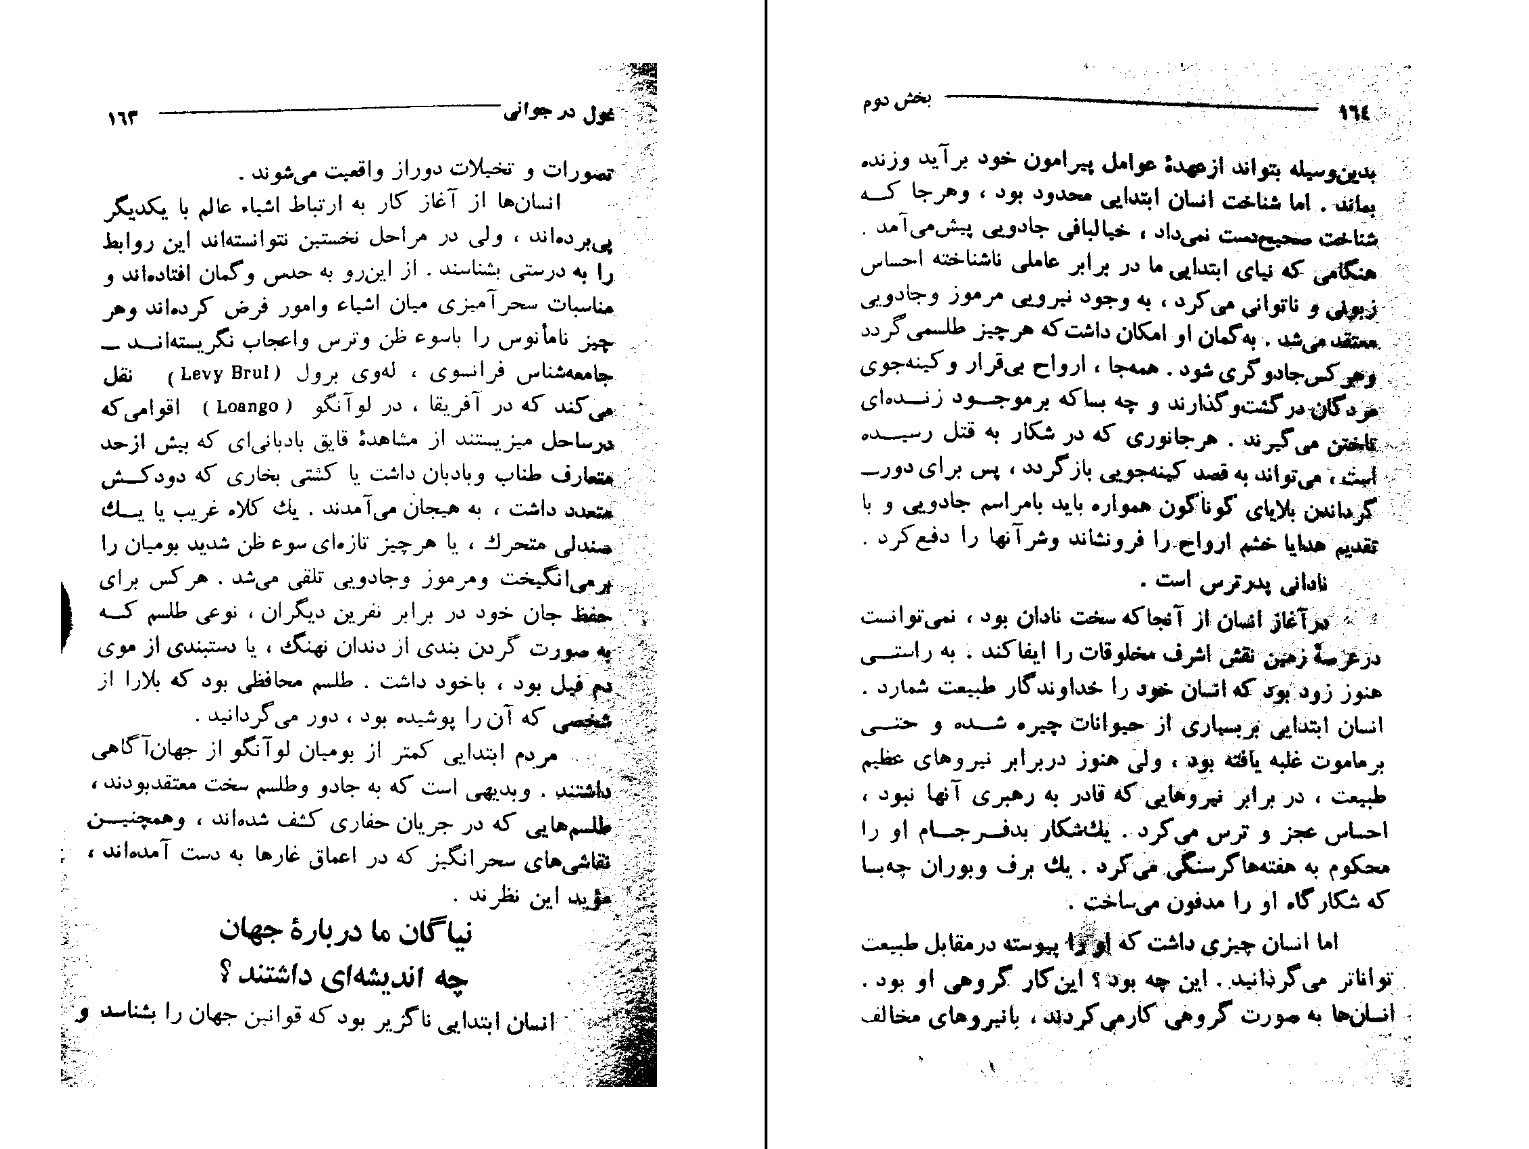 غول در جوانی ۱٦۳
تصورات و تخیلات دوراز واقعیت می‌شوند .
انسان‌ها از آغاز کار به ارتباط اشیاء عالم با یکدیگر
پی‌برده‌اند ، ولی در مراحل نخستین نتوانسته‌اند این روابط
را به درستی بشناسند . از این‌رو به حدس وگمان افتاده‌اند و
مناسبات سحرآمیزی میان اشیاء وامور فرض کرده‌اند وهر
چیز نامأنوس را باسوء ظن وترس واعجاب نگریسته‌انـد ــ
جامعه‌شناس فرانسوی ، له‌وی برول (Levy Brul) نقل
می‌کند که در آفریقا ، در لوآنگو (Loango) اقوامی‌که
درساحل میزیستند از مشاهدهٔ قایق بادبانی‌ای که بیش ازحد
متعارف طناب وبادبان داشت یا کشتی بخاری که دودکـش
متعدد داشت ، به هیجان می‌آمدند . یك کلاه غریب یا یـك
صندلی متحرك ، یا هرچیز تازه‌ای سوء ظن شدید بومیان را
برمی‌انگیخت ومرموز وجادویی تلقی می‌شد . هرکس برای
حفظ جان خود در برابر نفرین دیگران ، نوعی طلسم کـه
به صورت گردن بندی از دندان نهنگ ، یا دستبندی از موی
دم فیل بود ، باخود داشت . طلسم محافظی بود که بلارا از
شخصی که آن را پوشیده بود ، دور می‌گردانید .
مردم ابتدایی کمتر از بومیان لوآنگو از جهان‌آگاهی
داشتند . وبدیهی است که به جادو وطلسم سخت معتقدبودند ،
طلسم‌هایی که در جریان حفاری کشف شده‌اند ، وهمچنیـن
نقاشی‌های سحرانگیز که در اعماق غارها به دست آمده‌اند ،
مؤید این نظرند .
نیاگان ما دربارهٔ جهان
چه اندیشه‌ای داشتند ؟
انسان ابتدایی ناگزیر بود که قوانین جهان را بشناسد و
۱٦٤ بخش دوم
بدین‌وسیله بتواند ازعهدهٔ عوامل پیرامون خود برآید وزنده
بماند . اما شناخت انسان ابتدایی محدود بود ، وهرجا کـه
شناخت صحیح‌دست نمی‌داد ، خیالبافی جادویی پیش‌می‌آمد .
هنگامی که نیای ابتدایی ما در برابر عاملی ناشناخته احساس
زبونی و ناتوانی می‌کرد ، به وجود نیرویی مرموز وجادویی
معتقد می‌شد . به‌گمان او امکان داشت‌که هرچیز طلسمی‌گردد
وهرکس‌جادوگری شود . همه‌جا ، ارواح بی‌قرار وکینه‌جوی
مردگان درگشت‌وگذارند و چه بساکه برموجـود زنـده‌ای
تاختن می‌گیرند . هرجانوری که در شکار به قتل رسیـده
است ، می‌تواند به قصد کینه‌جویی بازگردد ، پس برای دورــ
گرداندن بلایای گوناگون همواره باید بامراسم جادویی و با
تقدیم هدایا خشم ارواح را فرونشاند وشرآنها را دفع‌کرد .
نادانی پدرترس است .
درآغاز انسان از آنجاکه سخت نادان بود ، نمی‌توانست
درعرصهٔ زمین نقش اشرف مخلوقات را ایفاکند . به راستـی
هنوز زود بود که انسان خود را خداوندگار طبیعت شمارد .
انسان ابتدایی بربسیاری از حیوانات چیره شـده و حتـی
برماموت غلبه یافته بود ، ولی هنوز دربرابر نیروهای عظیم
طبیعت ، در برابر نیروهایی که قادر به رهبری آنها نبود ،
احساس عجز و ترس می‌کرد . یك‌شکار بدفـرجـام او را
محکوم به هفته‌هاگرسنگی می‌کرد . یك برف وبوران چه‌بسا
که شکارگاه او را مدفون می‌ساخت .
اما انسان چیزی داشت که او را پیوسته درمقابل طبیعت
تواناتر می‌گردانید . این چه بود ؟ این‌کار گروهی او بود .
انسان‌ها به صورت گروهی کارمی‌کردند ، بانیروهای مخالف